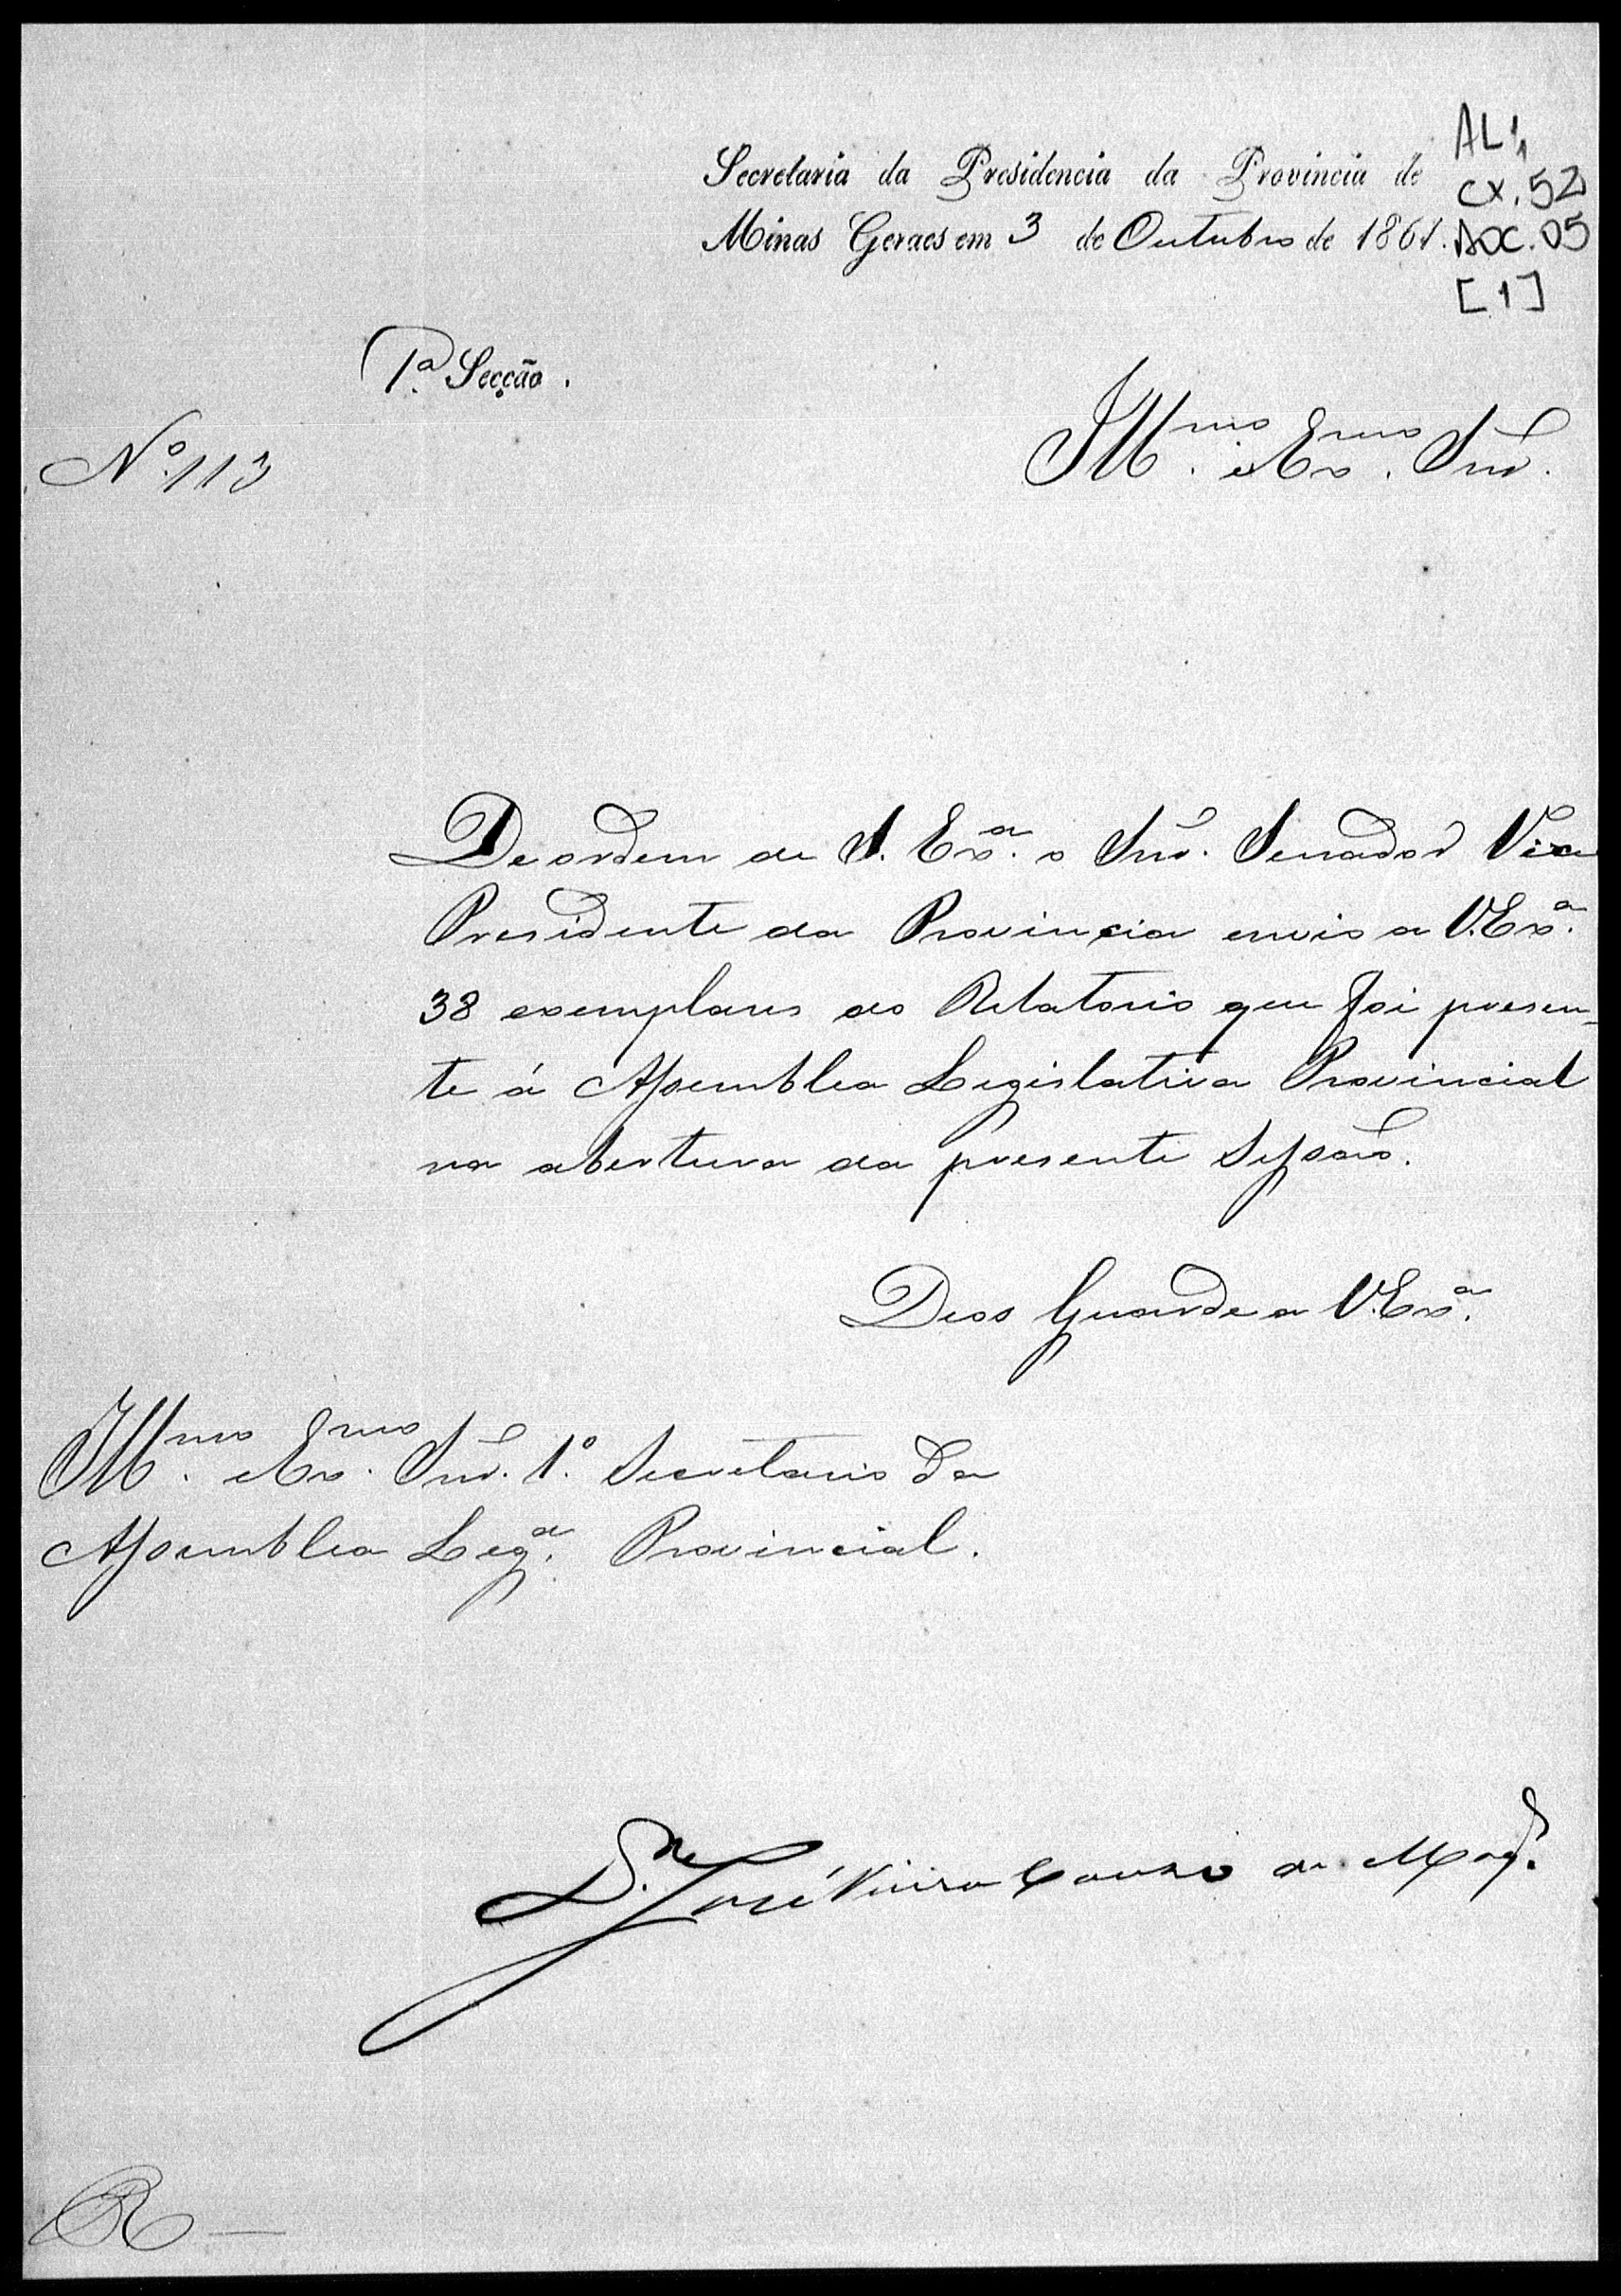 AL 1,1
Secretaria da Presidencia da Provincia de
CX. 52
Minas Geraes em 3 de Outubro de 1861.
DOC. 05
[1]
1.ª Secção.
Nº 113
Illmo. e Exmo. Snr.
De ordem de S. Exª. o Snr. Senador Vice
Presidente da Provincia envio a V. Exª.
38 exemplares do Relatorio que foi presen-
te á Assemblea Legislativa Provincial
na abertura da presente Sessão.
Deos Guarde a V. Exª.
Illmo. e Exmo. Snr. 1º. Secretario da
Assemblea Legª. Provincial.
Dr. José Vieira Couto de Mags.
R